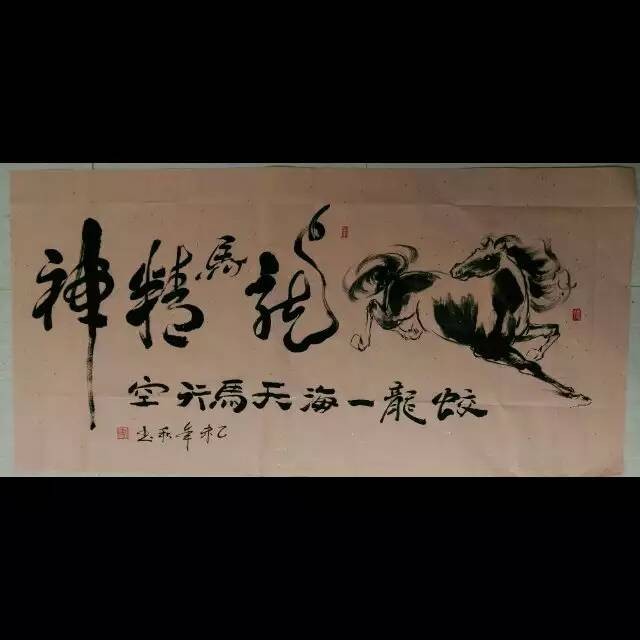 龍馬精神
蛟龍一海天馬行空
乙未年秋書